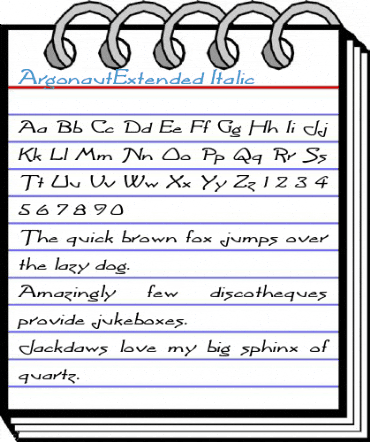 ArgonautExtended Italic
Aa Bb Cc Dd Ee Ff Gg Hh Ii Jj
Kk Ll Mm Nn Oo Pp Qq Rr Ss
Tt Uu Vv Ww Xx Yy Zz 1 2 3 4
5 6 7 8 9 0
The quick brown fox jumps over
the lazy dog.
Amazingly few discotheques
provide jukeboxes.
Jackdaws love my big sphinx of
quartz.